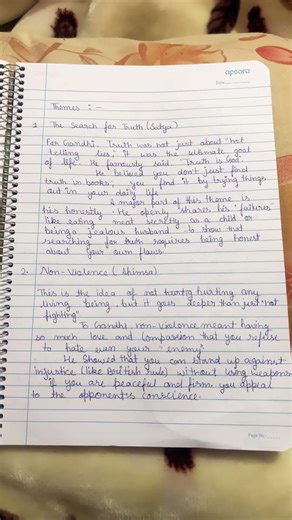 apsara
Date
Themes :-
1. The Search for Truth (Satya)
For Gandhi, Truth was not just about "not
telling lies"; it was the ultimate goal
of life. He famously said, "Truth is God."
He believed you don't just find
truth in books; you find it by trying things
out in your daily life.
A major part of this theme is
his honestly. He openly shares his "failures"
like eating meat secretly as a child or
being a jealous husband to show that
searching for truth requires being honest
about your own flaws.
2. Non-Violence (Ahimsa)
This is the idea of not hurting any
living being, but it goes deeper than just "not
fighting"
To Gandhi, non-violence meant having
so much love and compassion that you refuse
to hate even your "enemy".
He showed that you can stand up against
injustice (like British rule) without using weapons
If you are peaceful and firm, you appeal
to the opponent's conscience.
Page No.